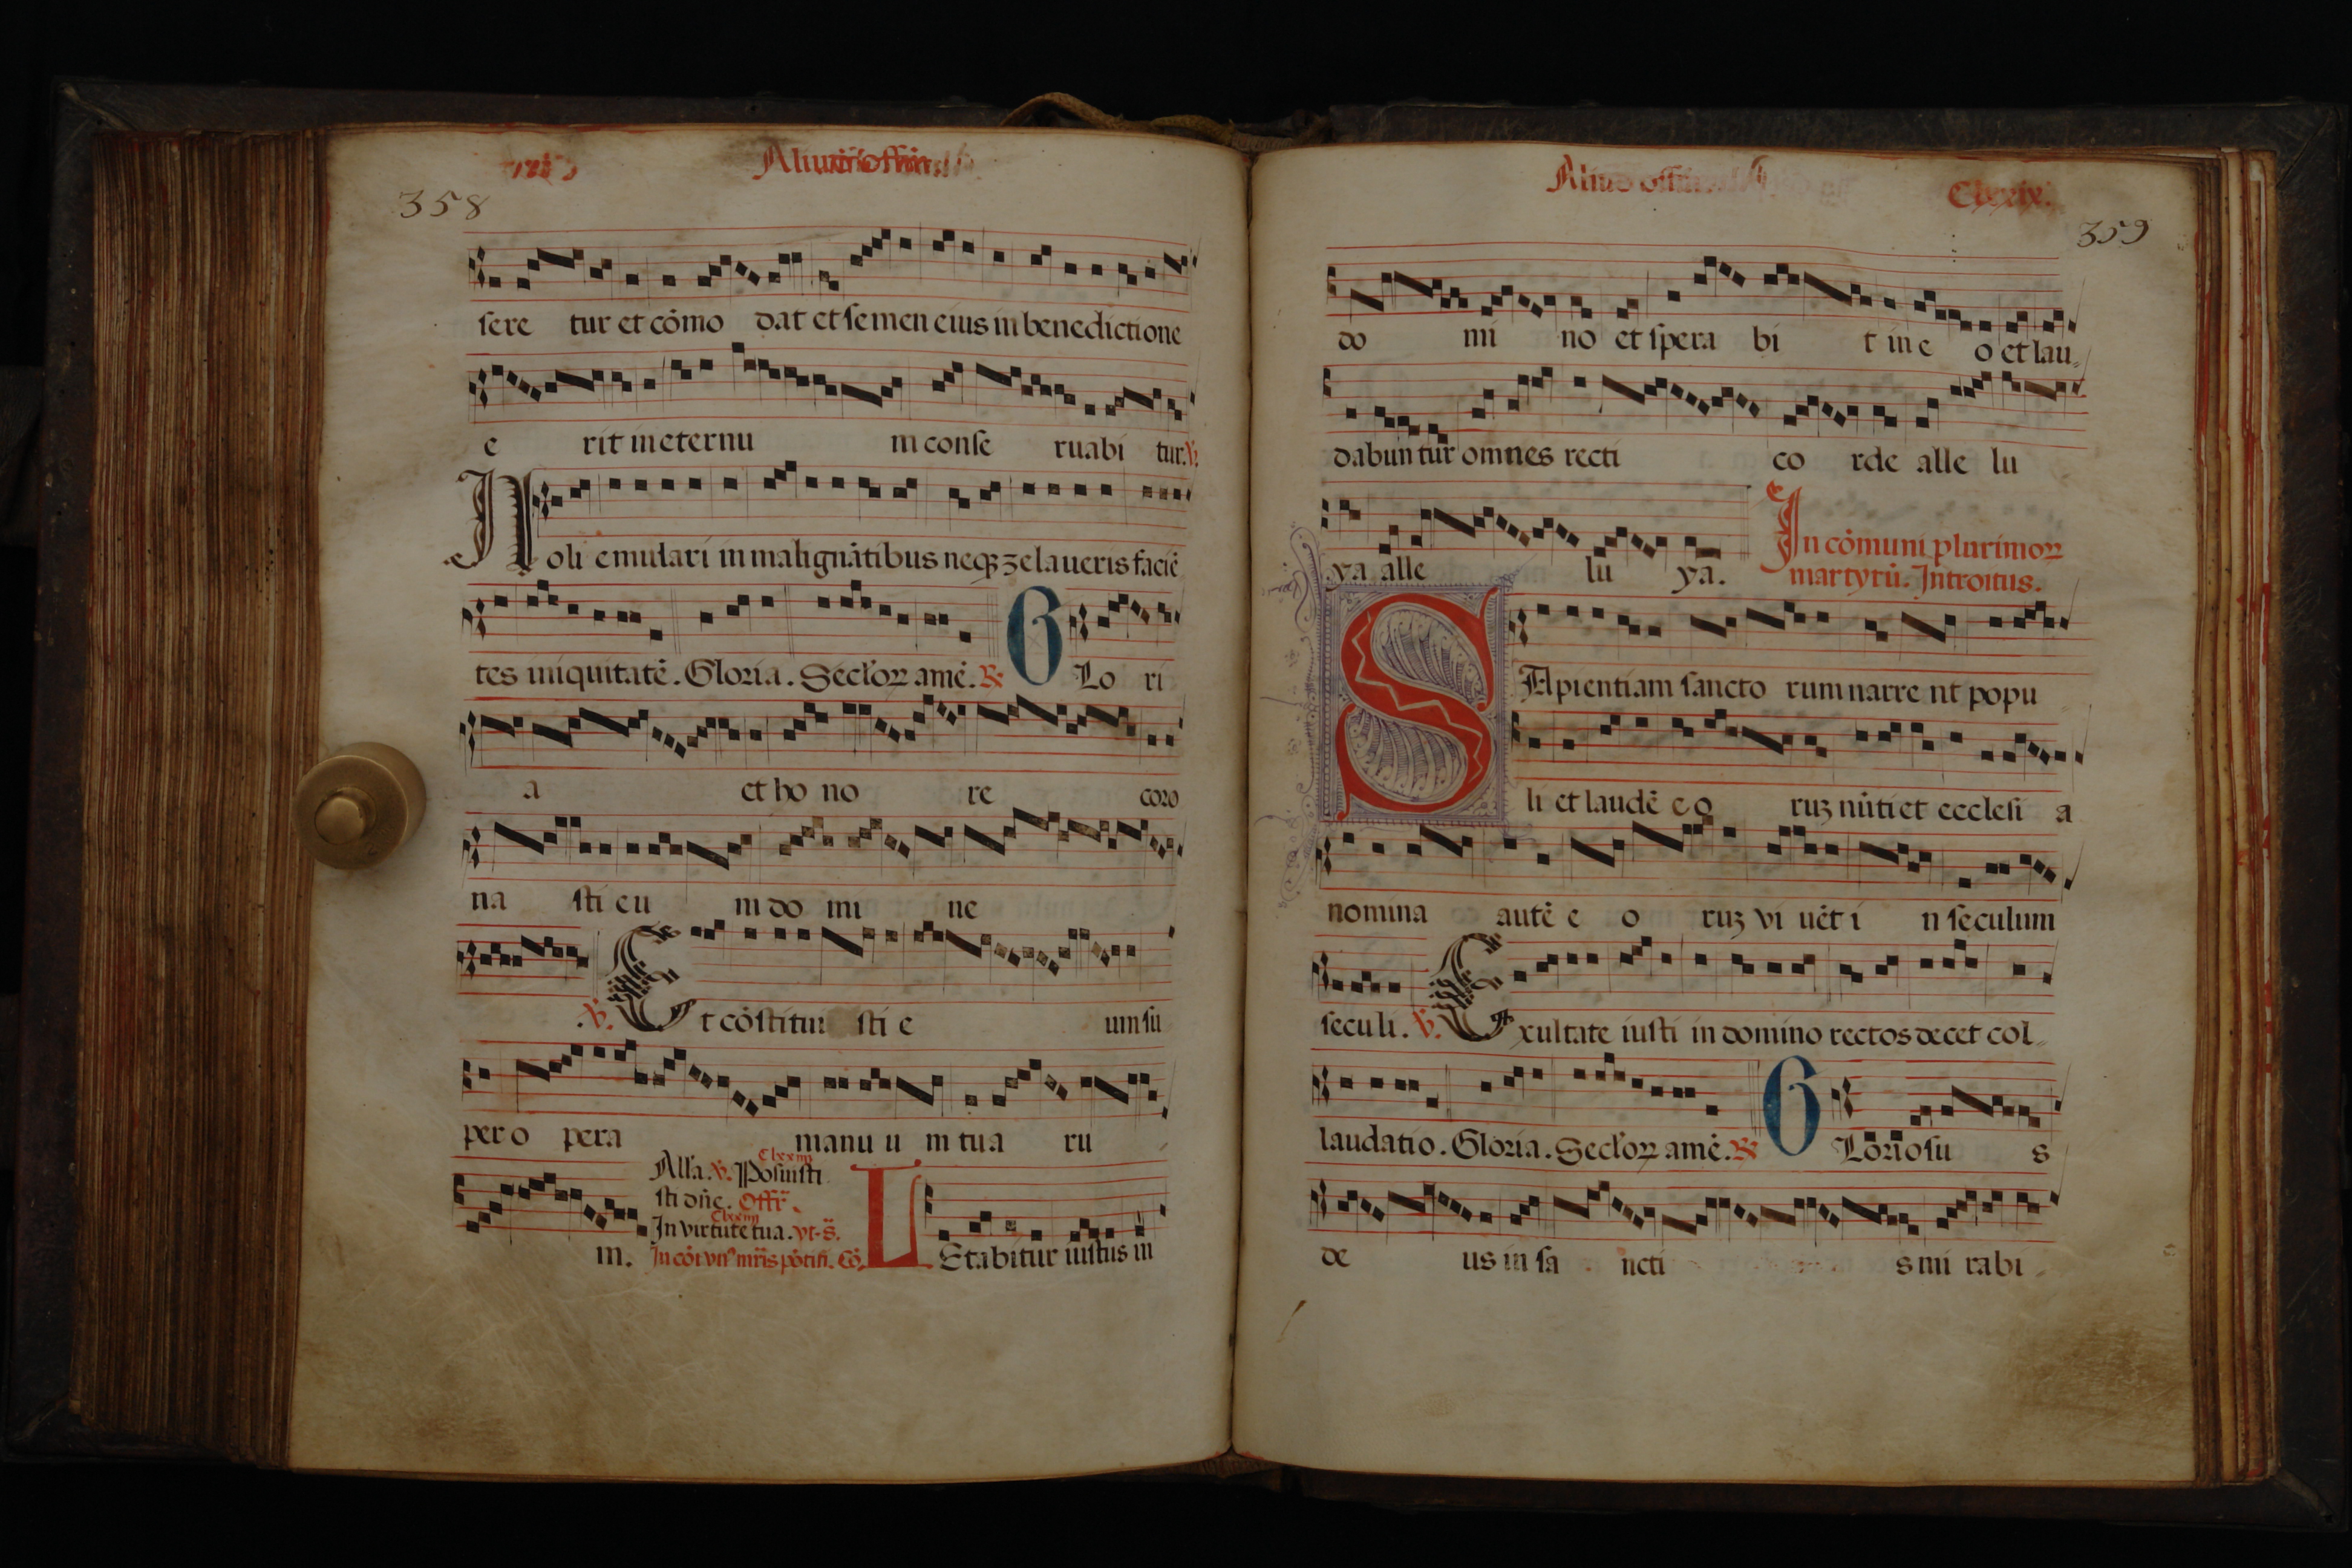 358
sere tur et cōmo dat et semen eius in benedictione
e rit in eternu m conse ruabi tur. ℣.
Noli emulari in malignātibus neqꝫ zelaueris faciē
tes iniquitatē. Gloria. Seclꝰoꝝ amē. ℟ GLo ri
a et ho no re coro
na sti eu m do mi ne
.℣. Et cōstitui sti e um su
per o pera manu u m tua ru
Clxxiiii
Alla. ℣. Posuisti
sti dn̄e. Offr̄.
Clxxiiii
In virtute tua. vt. s̄.
m. LEtabitur iustus in
Aliud
Clxxix.
359
do mi no et spera bi t in e o et lau
dabun tur omnes recti co rde alle lu
ya alle lu ya. In cōmuni plurimoꝝ
martyrū. Introitus.
SApientiam sancto rum narre nt popu
li et laudē e o ruꝫ nūti et ecclesi a
nomina autē e o ruꝫ vi uēt i n seculum
seculi. ℣. Exultate iusti in domino rectos decet col
laudatio. Gloria. Seclꝰoꝝ amē. ℟ GLoriosu s
de us in sa ncti s mi rabi